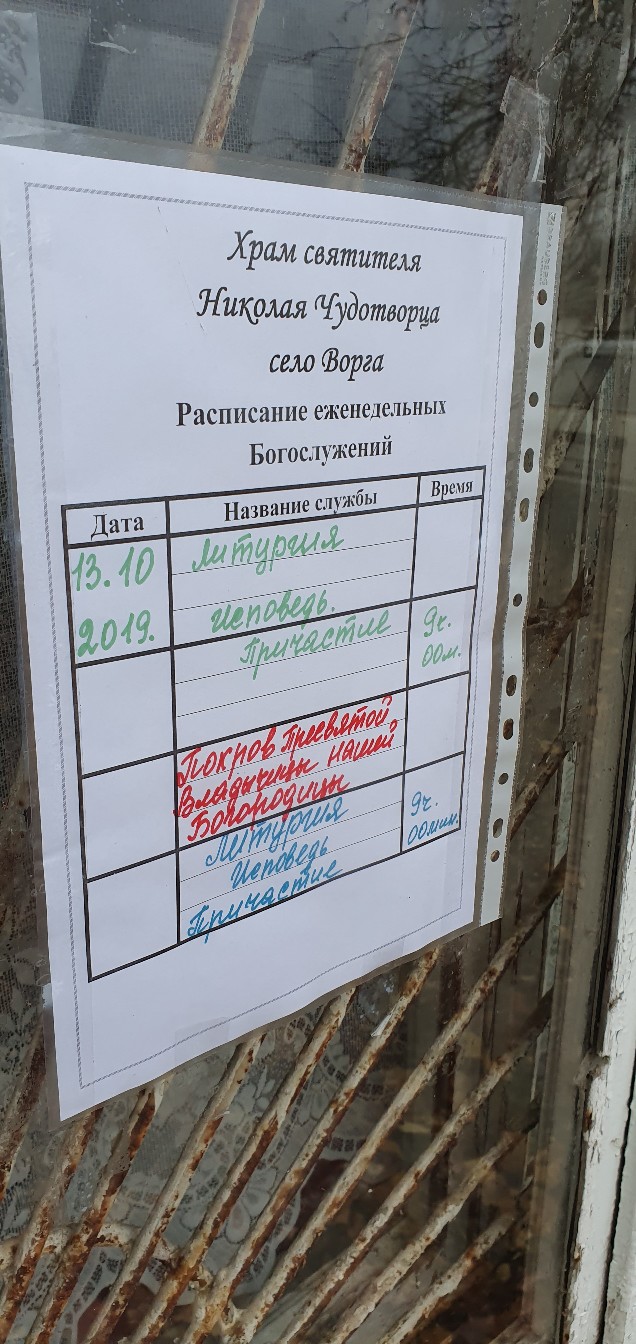 Храм святителя
Николая Чудотворца
село Ворга
Расписание еженедельных
Богослужений
Дата Название службы Время
13.10 Литургия
2019. исповедь.
Причастие 9ч. 00м.
Покров Пресвятой
Владычицы нашей
Богородицы
Литургия 9ч.
Исповедь 00мин.
Причастие